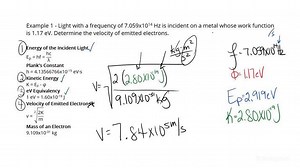 Example 1 - Light with a frequency of 7.059x10¹⁴ Hz is incident on a metal whose work function
is 1.17 eV. Determine the velocity of emitted electrons.
1 Energy of the Incident Light
Eₚ = hf = hc/λ
Planck's Constant
h = 4.13566766x10⁻¹⁵ eV·s
2 Kinetic Energy
K = Eₚ - φ
3 eV Equivalency
1 eV = 1.60x10⁻¹⁹ J
4 Velocity of Emitted Electrons
v = √(2K/m)
Mass of an Electron
9.109x10⁻³¹ kg
kg·m²/s²
V = √(2(2.80x10⁻¹⁹J)/9.109x10⁻³¹kg)
V = 7.84x10⁵m/s
f = 7.059x10¹⁴Hz
φ = 1.17eV
Eₚ = 2.919eV
K = 2.80x10⁻¹⁹J